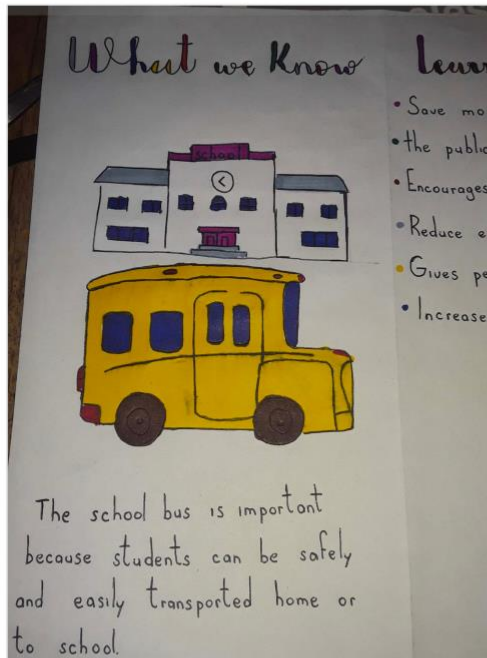 What we Know
school
The school bus is important
because students can be safely
and easily transported home or
to school.
• Save mo
• the public
• Encourages
• Reduce e
• Gives pe
• Increase